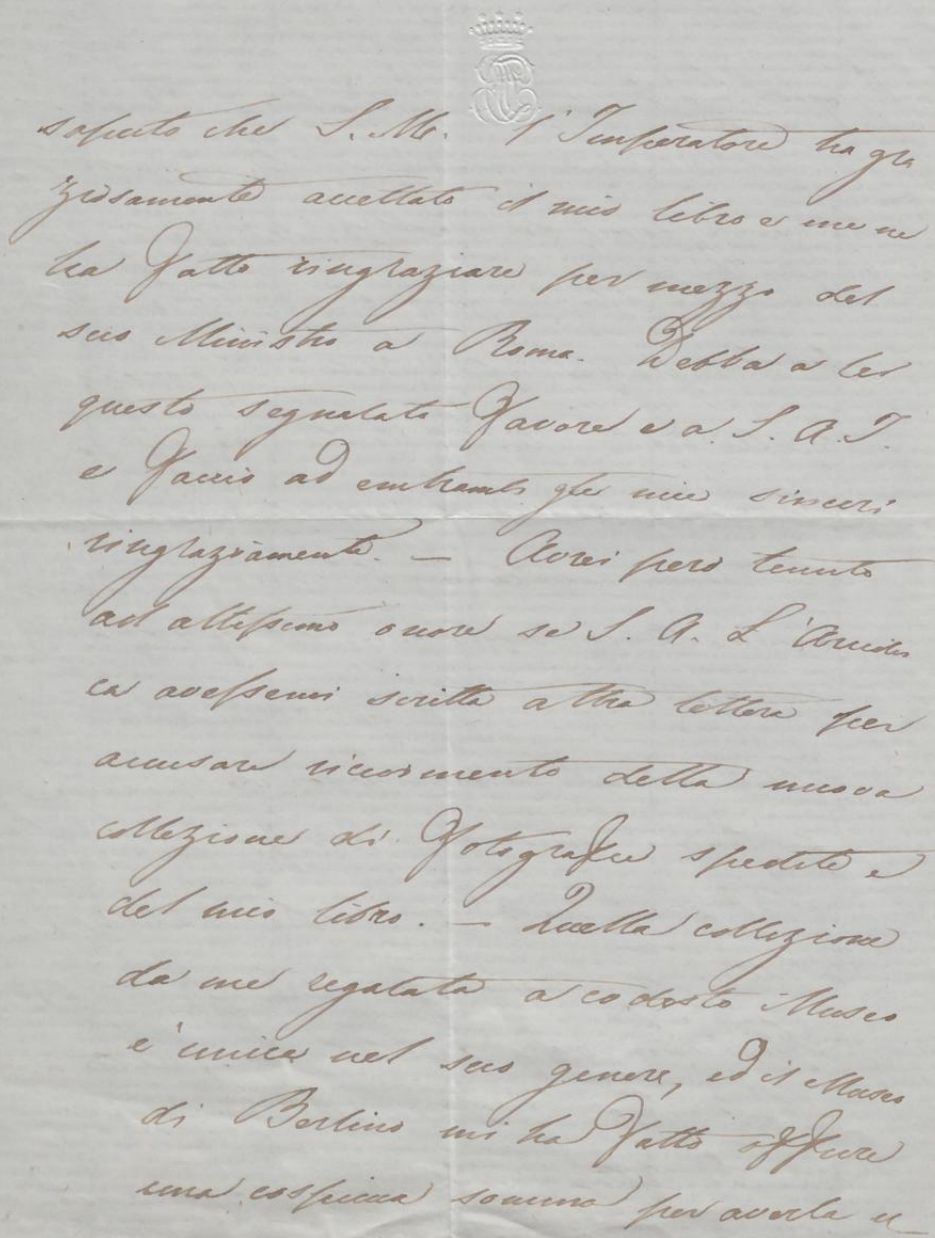 saputo che S. M. l'Imperatore ha gra
ziosamente accettato il mio libro e me ne
ha fatto ringraziare per mezzo del
suo Ministro a Roma. Debbo a lei
questo segnalato favore e a S. A. I.
e faccio ad entrambi gli miei sinceri
ringraziamenti. — Avrei però tenuto
ad altissimo onore se S. A. L'Arcidu
ca avessemi scritta altra lettera per
accusare ricevimento della nuova
collezione di fotografie spedite e
del mio libro. — Quella collezione
da me regalata a codesto Museo
è unica nel suo genere, ed il Museo
di Berlino mi ha fatto offrire
una cospicua somma per averla e